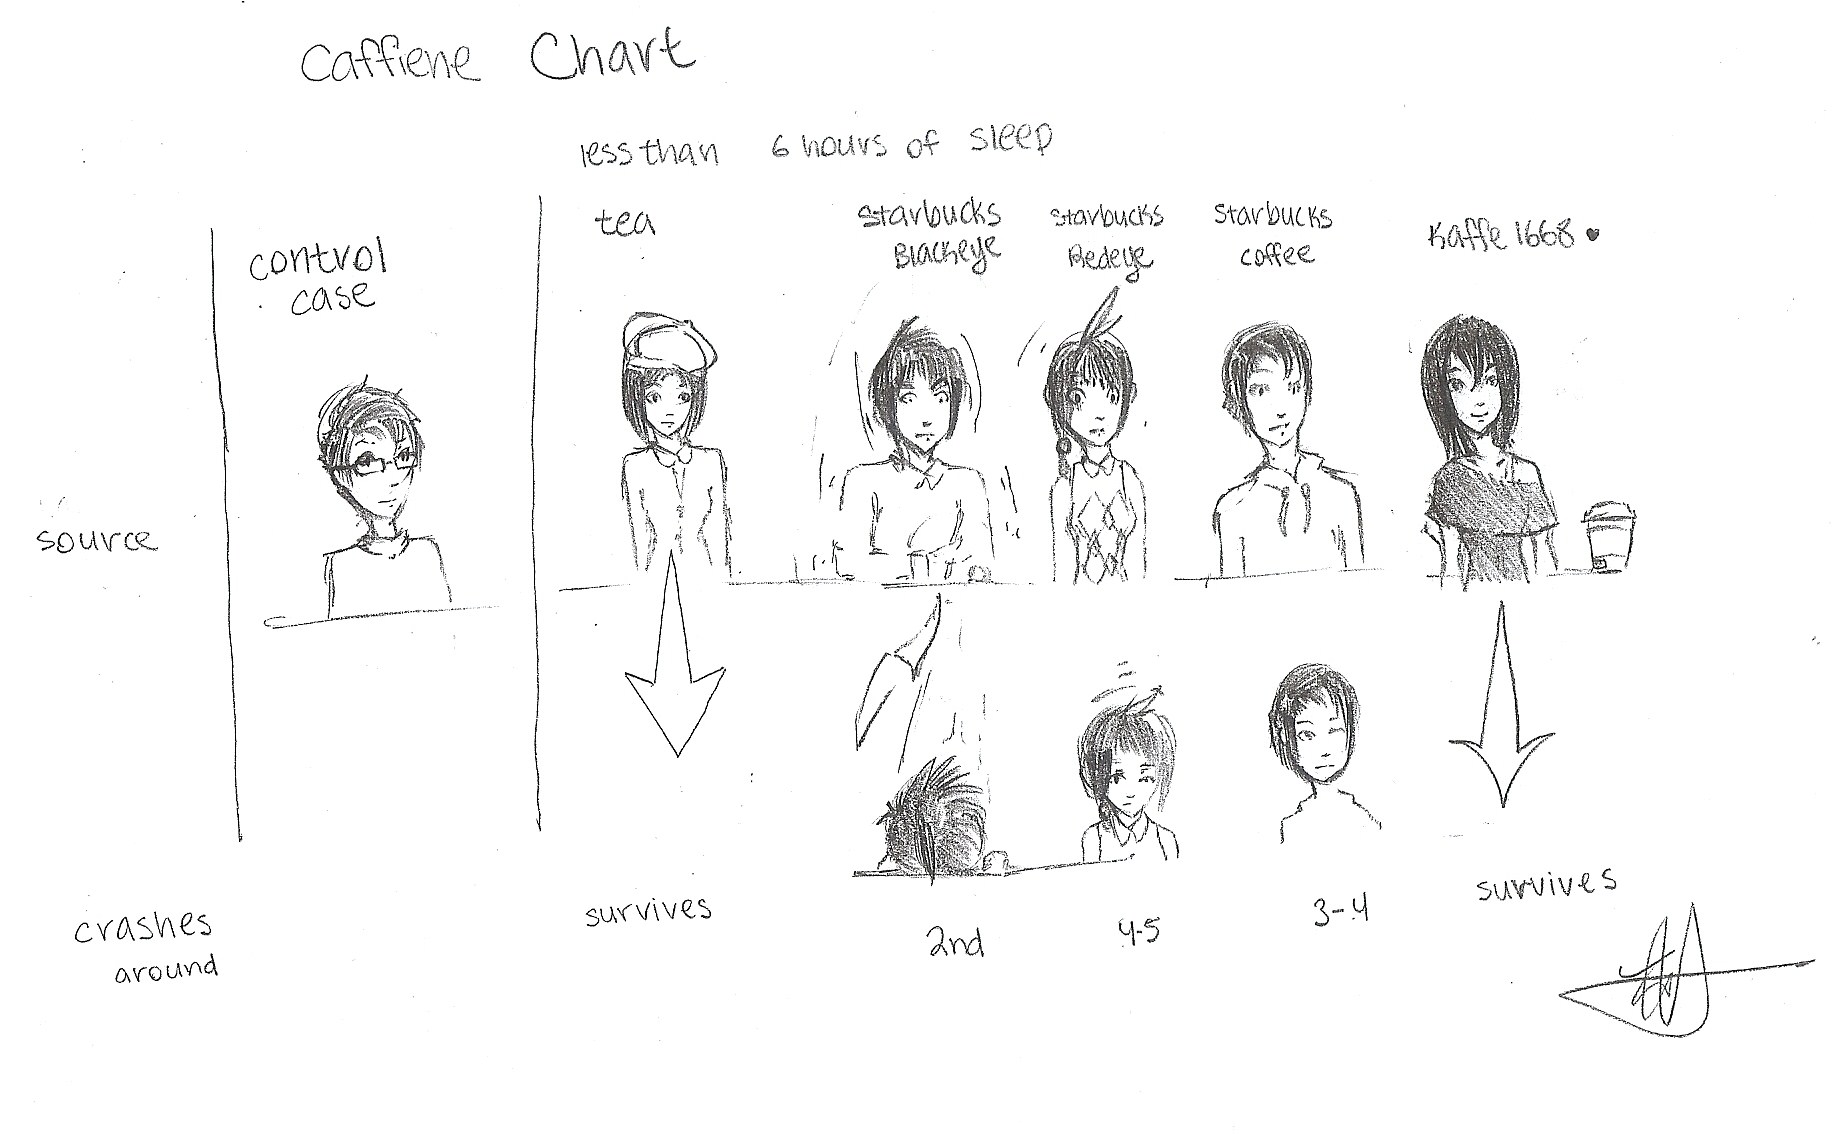 Caffiene Chart
less than 6 hours of sleep
control
case
tea
Starbucks
Blackeye
Starbucks
Redeye
Starbucks
coffee
Kaffe 1668 ♥
source
crashes
around
survives
2nd
4-5
3-4
survives